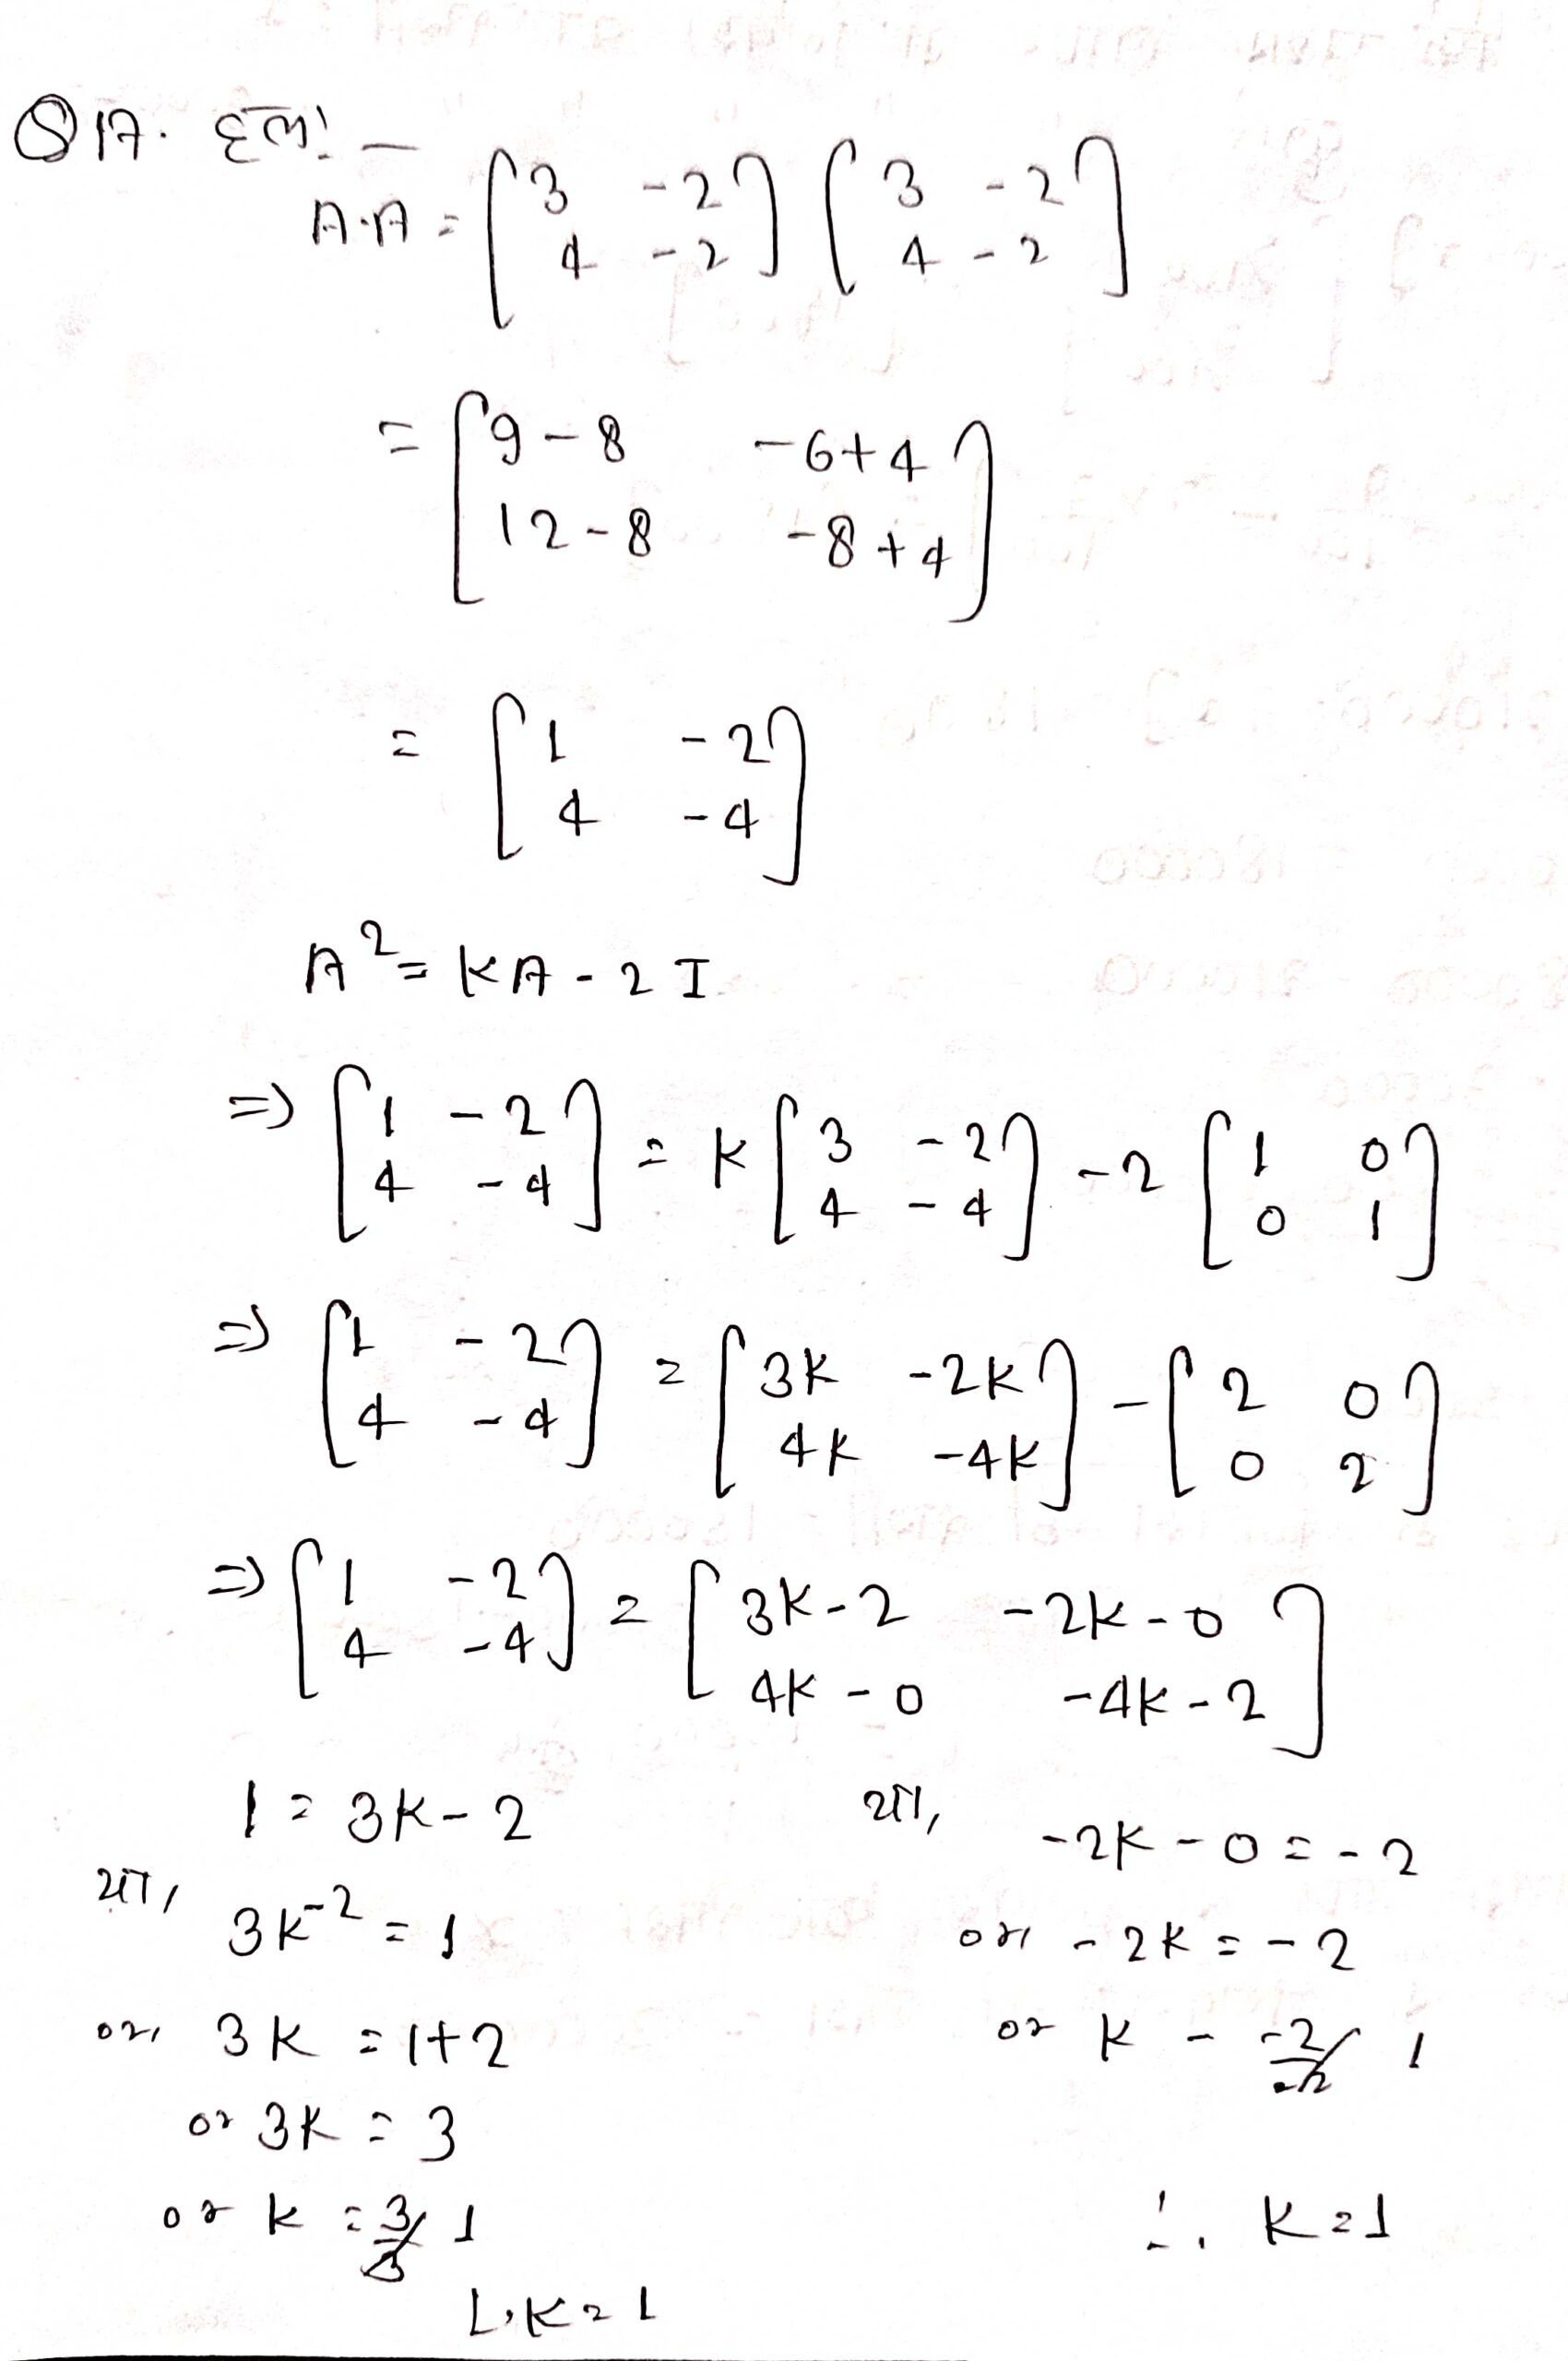 Q17. हल:—
A·A = [3 -2 4 -2] [3 -2 4 -2]
= [9-8 -6+4 12-8 -8+4]
= [1 -2 4 -4]
A² = KA - 2I
=> [1 -2 4 -4] = K [3 -2 4 -4] - 2 [1 0 0 1]
=> [1 -2 4 -4] = [3K -2K 4K -4K] - [2 0 0 2]
=> [1 -2 4 -4] = [3K-2 -2K-0 4K-0 -4K-2]
1 = 3K-2
या, 3K-2 = 1
or, 3K = 1+2
or 3K = 3
or K = 3/3 1
∴ K = 1
या, -2K-0 = -2
or, -2K = -2
or K = -2/-2 1
∴ K = 1